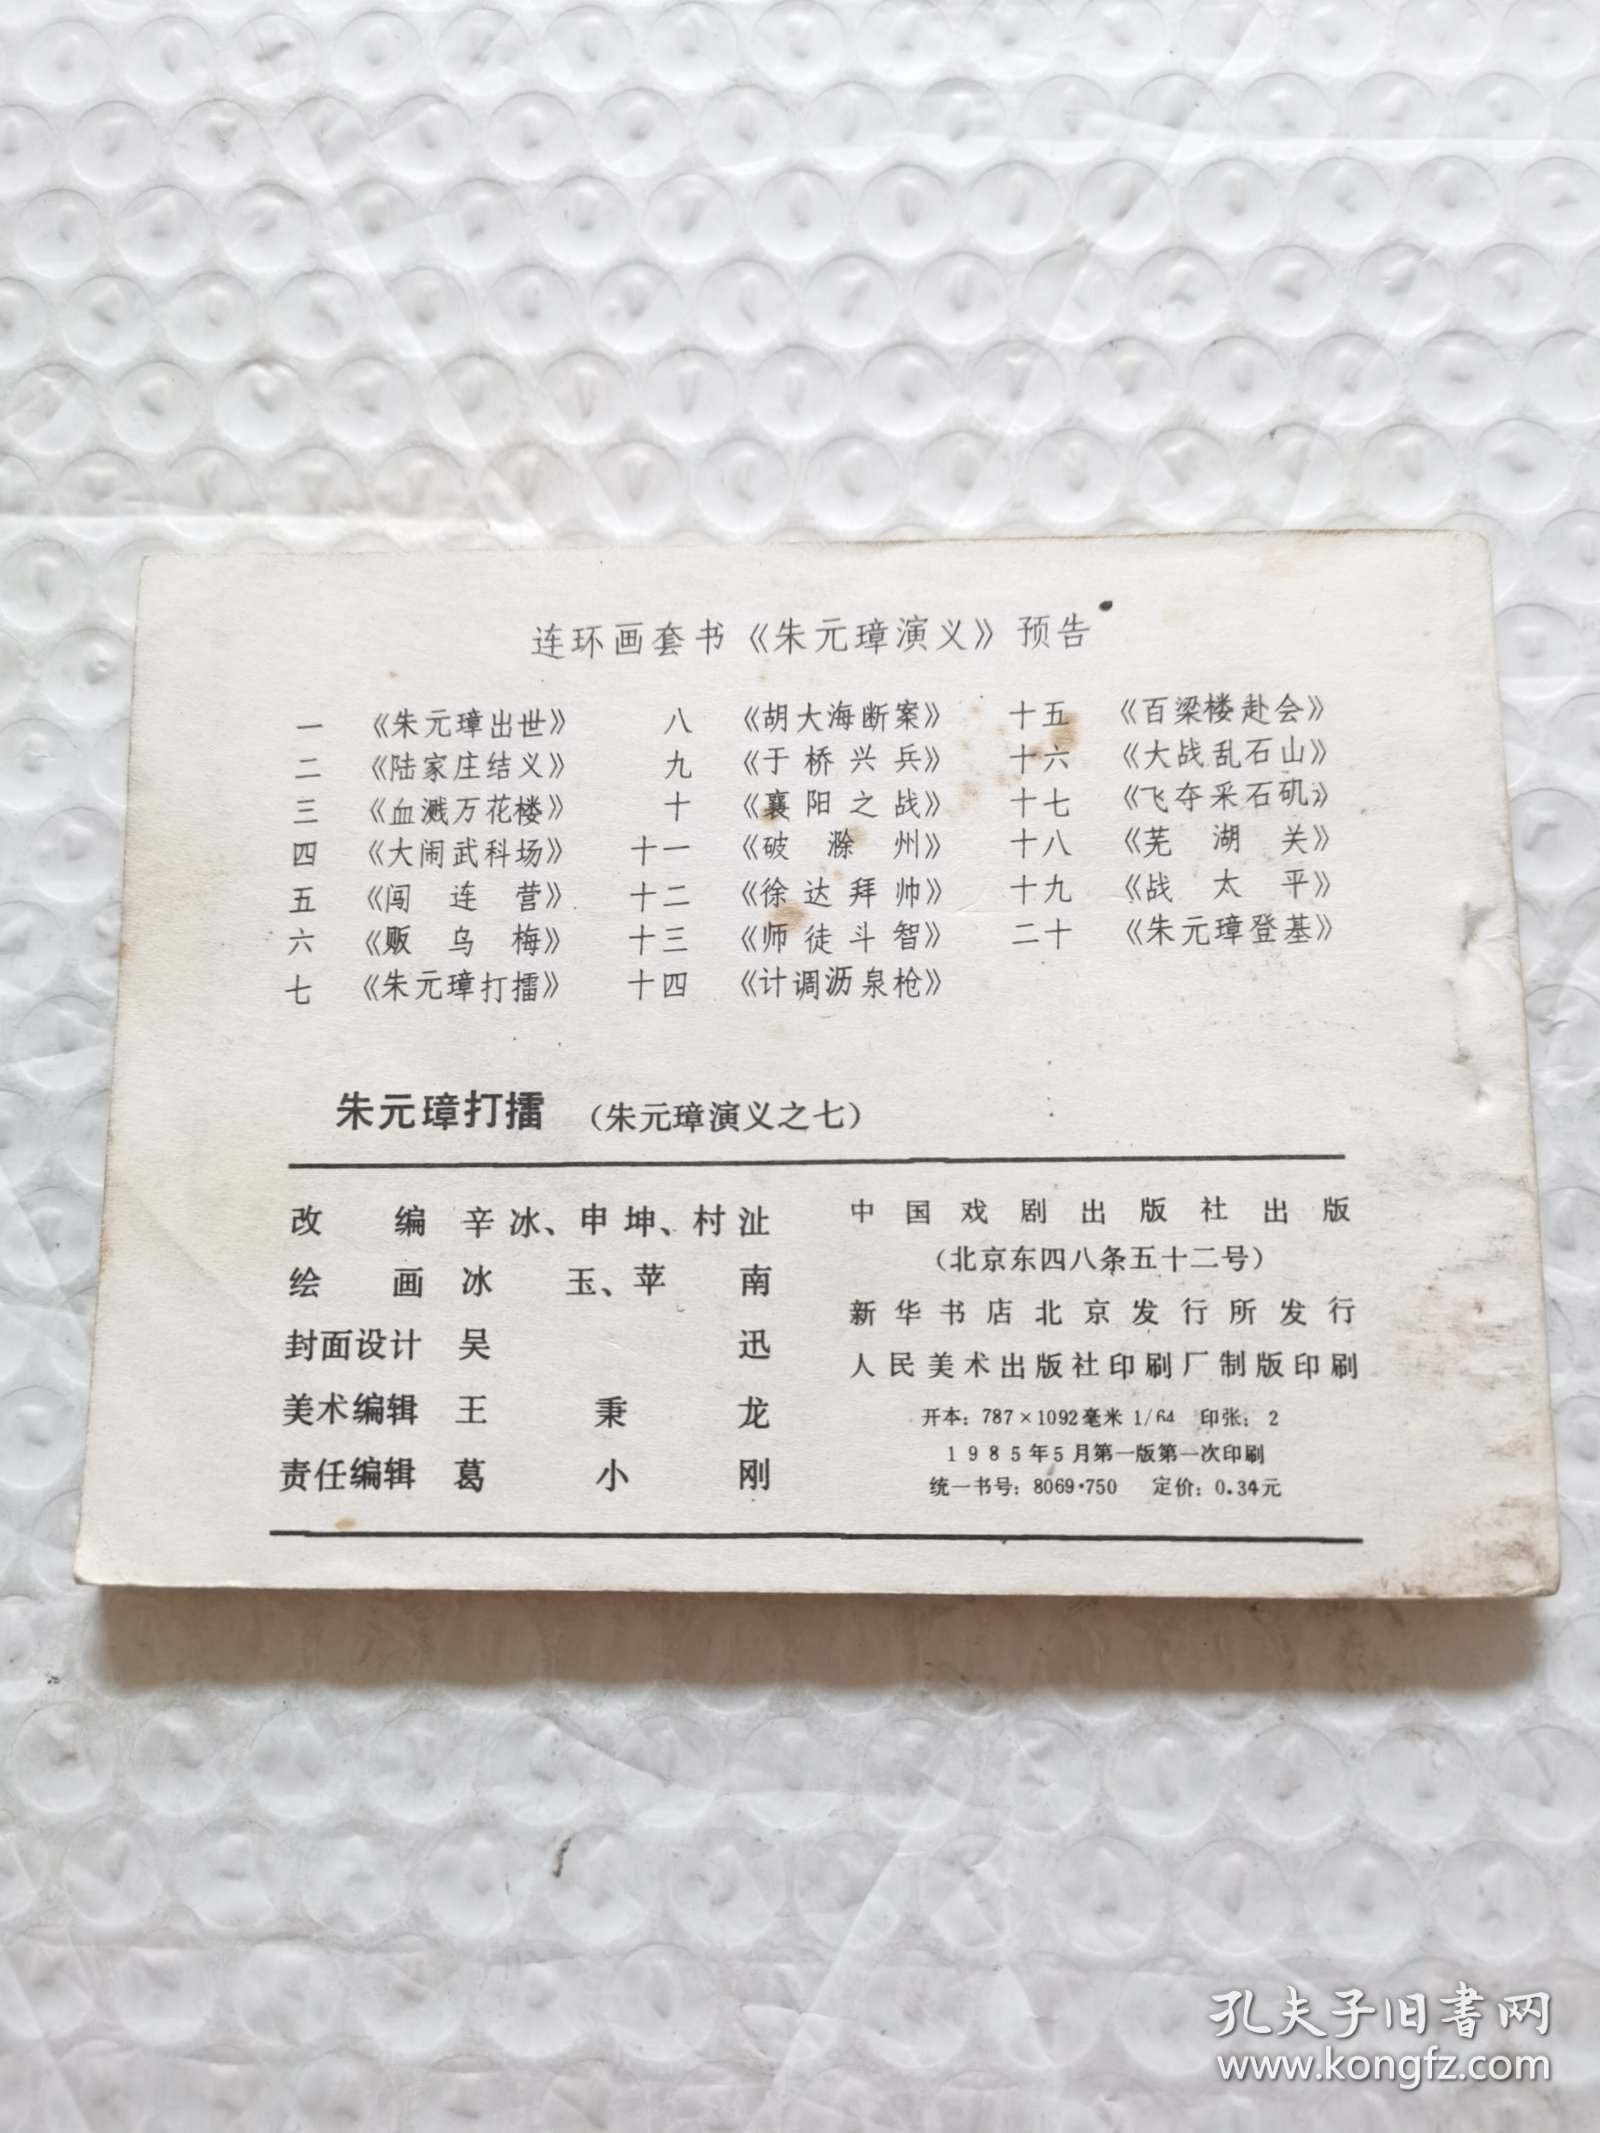 连环画套书《朱元璋演义》预告
一 《朱元璋出世》 八 《胡大海断案》 十五 《百梁楼赴会》
二 《陆家庄结义》 九 《于桥兴兵》 十六 《大战乱石山》
三 《血溅万花楼》 十 《襄阳之战》 十七 《飞夺采石矶》
四 《大闹武科场》 十一 《破滁州》 十八 《芜湖关》
五 《闯连营》 十二 《徐达拜帅》 十九 《战太平》
六 《贩乌梅》 十三 《师徒斗智》 二十 《朱元璋登基》
七 《朱元璋打擂》 十四 《计调沥泉枪》
朱元璋打擂 (朱元璋演义之七)
改编 辛冰、申坤、村沚
绘画 冰玉、苹南
封面设计 吴迅
美术编辑 王秉龙
责任编辑 葛小刚
中国戏剧出版社出版
(北京东四八条五十二号)
新华书店北京发行所发行
人民美术出版社印刷厂制版印刷
开本: 787×1092毫米 1/64 印张: 2
1985年5月第一版第一次印刷
统一书号: 8069·750 定价: 0.34元
孔夫子旧书网
www.kongfz.com